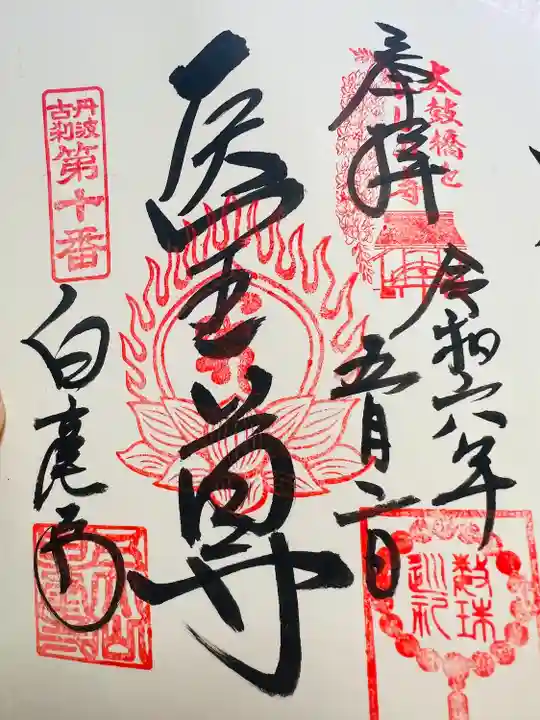 奉拝
太鼓橋と
令和六年
五月二日
数珠
巡礼
医王尊
丹波
古刹
第十番
白毫寺